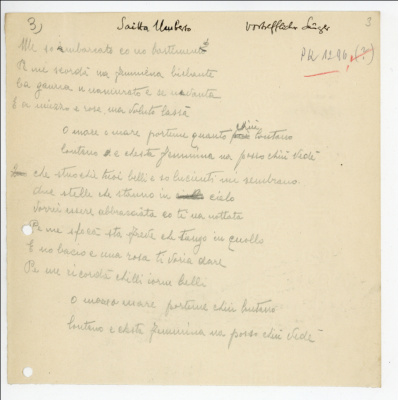 3) Saitta Umberto vortrefflicher Sänger 3
PK 1296 (3)
Me so mbarcato co no bastimento
Pe me scordà na femmena birbante
a n'ata
E a miezzo e rose ma voluto lassà
O mare e mare porteme quanto chiù lontano
lontano e chesta femmena na posso chiù vedè
che stuocchie tuoi belli e so lucienti me sembrano
due stelle che stanno in cielo
vorrei essere abbracciato co te na nottata
Pe me sta freve che tengo in cuollo
E no bacio e una rosa ti voria dare
Pe me ricordà chilli iorne belli
O mare mare porteme chiù lontano
lontano e chesta femmena na posso chiù vedè